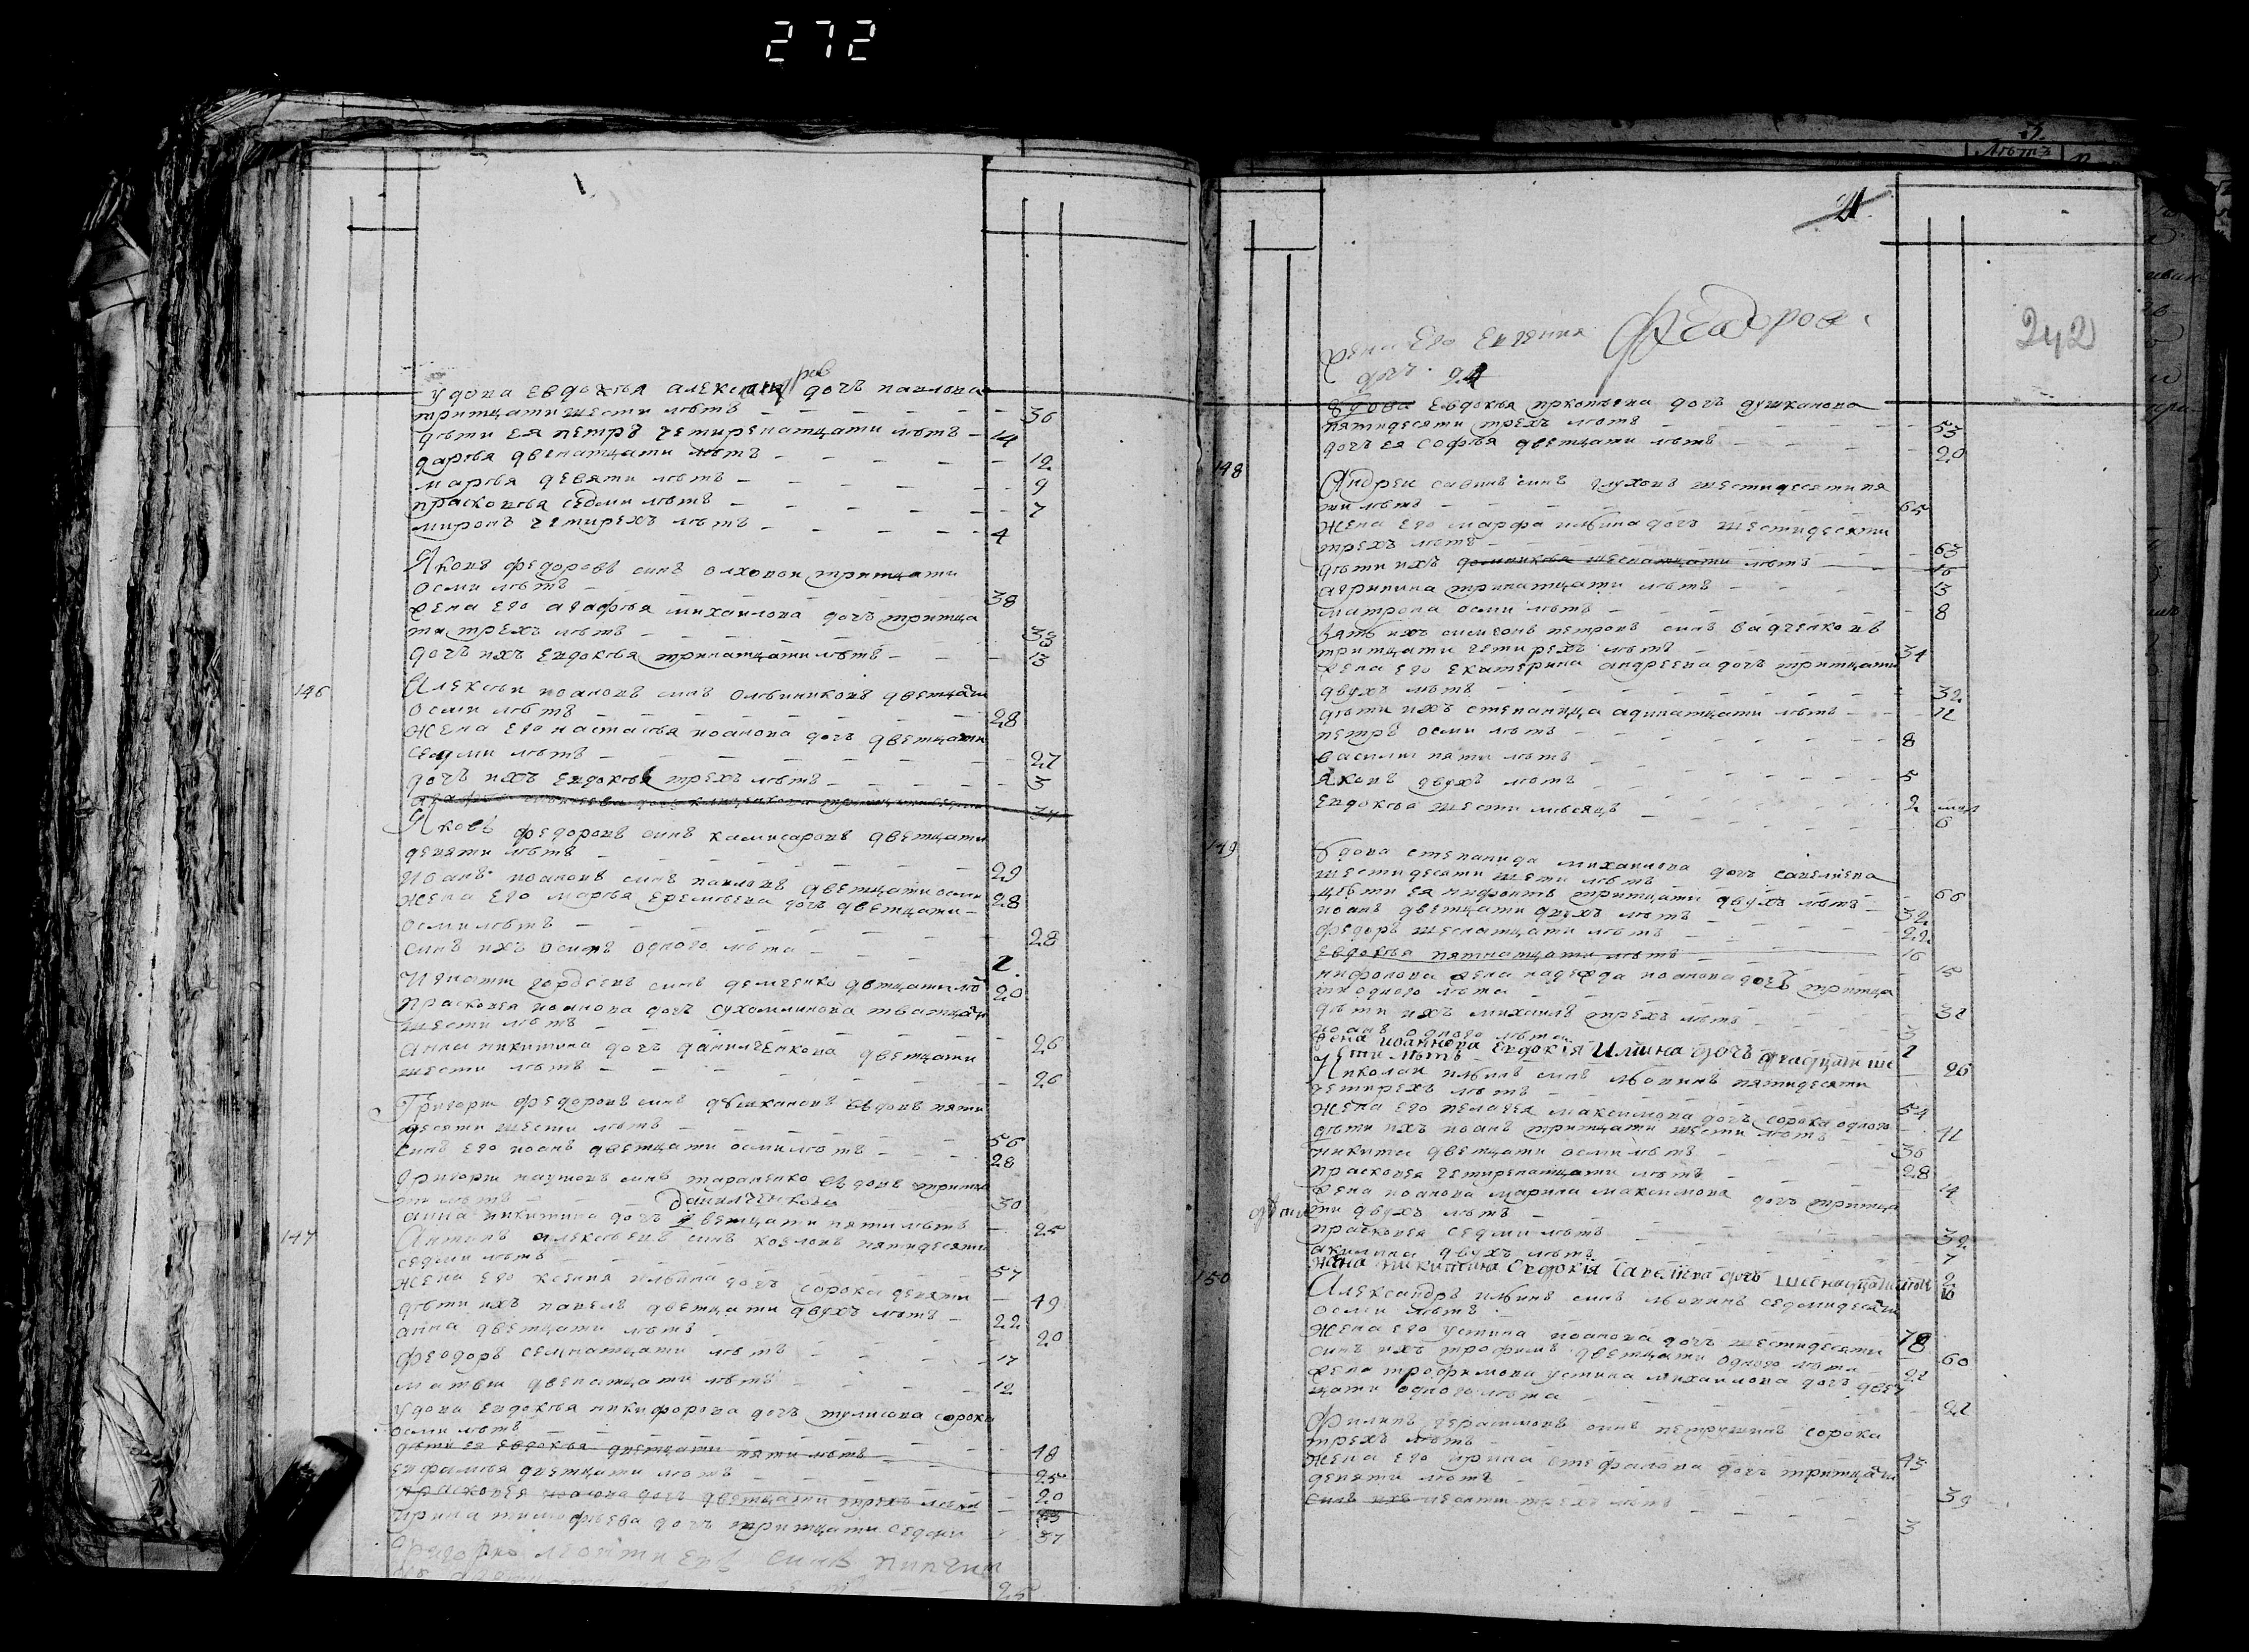 272
удова евдокѣя александров дочъ павлова
тритцати шести лѣтъ 36
дѣти ея петръ четиренатцати лѣтъ 14
дарѣя двенатцати лѣтъ 12
марѣя девяти лѣтъ 9
прасковѣя седми лѣтъ 7
миронъ четирехъ лѣтъ 4
Яковъ федоровъ синъ олховои тритцати
осми лѣтъ 38
жена его агафѣя михаилова дочъ тритца
ти трехъ лѣтъ 33
дочъ ихъ евдокѣя тринатцати лѣтъ 13
146 Алексѣи иоановъ синъ олѣиниковъ дветцати
осми лѣтъ 28
жена его настасѣя иоанова дочъ дветцати
седми лѣтъ 27
дочъ ихъ евдокѣя трехъ лѣтъ 3
Яковъ федоровъ синъ камисаровъ дветцати
девяти лѣтъ 29
Иоанъ иоановъ синъ павловъ дветцати осми 28
жена его марѣя еремѣева дочъ дветцати
осми лѣтъ 28
синъ ихъ осипъ одного лѣта 1
Игнати гордеевъ синъ демченко двтцати лѣ 20
прасковея иоанова дочъ сухомлинова тватцати
шести лѣтъ 26
анна никитина дочъ данилченкова дветцати
шести лѣтъ 26
Григори федоровъ синъ душкановъ вдовъ пяти
десяти шести лѣтъ 56
синъ его иоанъ дветцати осми лѣтъ 28
григори наумовъ синъ тараненко вдовъ тритца
ти лѣтъ 30
данилченкова
анна никитина дочъ дветцати пяти лѣтъ 25
147 Антонъ алексѣевъ синъ козловъ пятидесяти
седми лѣтъ 57
жена его ксения илѣина дочъ сорока девяти 49
дѣти ихъ павелъ дветцати двухъ лѣтъ 22
анна дветцати лѣтъ 20
феодоръ семнатцати лѣтъ 17
матвѣи двенатцати лѣтъ 12
удова евдокѣя никифорова дочъ тулисова сорока
осми лѣтъ 48
дѣти ея евдокѣя дветцати пяти лѣтъ 25
евфимѣя дветцати лѣтъ 20
прасковея иоанова дочъ дветцати трехъ лѣтъ 23
ирина тимофѣева дочъ тритцати седми 37
25
242
жена его евгения федорова
дочъ
вдова евдокѣя прокопѣева дочъ душканова
пятидесяти трехъ лѣтъ 53
дочъ ея софѣя дветцати лѣтъ 20
148 Андреи савинъ синъ глуховъ шестидесяти пя
ти лѣтъ 65
жена его марфа илѣина дочъ шестидесяти
трехъ лѣтъ 63
дѣти ихъ домникѣя шеснатцати лѣтъ 16
агрипина тринатцати лѣтъ 13
матрона осми лѣтъ 8
зять ихъ симеонъ петровъ синъ вадченковъ
тритцати четирехъ лѣтъ 34
жена его екатерина андреева дочъ тритцати
двухъ лѣтъ 32
дѣти ихъ степанида адинатцати лѣтъ 11
петръ осми лѣтъ 8
василии пяти лѣтъ 5
яковъ двухъ лѣтъ 2
евдокѣя шести мѣсяцъ 6
149 вдова степанида михаилова дочъ савелиева
шестидесяти шести лѣтъ 66
дѣти ея нифонтъ тритцати двухъ лѣтъ 32
иоанъ дветцати двухъ лѣтъ 22
федоръ шеснатцати лѣтъ 16
евдокѣя пятнатцати лѣтъ 15
нифонова жена надежда иоанова дочъ тритца
ти одного лѣта 31
дѣти ихъ михаилъ трехъ лѣтъ 3
иоанъ одного лѣта 1
жена иоаннова Евдокія Илина дочъ двадцати ше
сти лѣтъ 26
Николаи илѣинъ синъ лѣонинъ пятидесяти
четирехъ лѣтъ 54
жена его пелагея максимова дочъ сорока одного 41
дѣти ихъ иоанъ тритцати шести лѣтъ 36
никита дветцати осми лѣтъ 28
прасковея четиренатцати лѣтъ 14
жена иоанова марина максимова дочъ тритца
ти двухъ лѣтъ 32
прасковея седми лѣтъ 7
акилина двухъ лѣтъ 2
жена никитина Евдокія Савелиева дочъ шеснадцати лѣт 16
150 Александръ илѣинъ синъ лѣонинъ седмидесяти
осми лѣтъ 78
жена его устина иоанова дочъ шестидесяти 60
синъ ихъ трофимъ дветцати одного лѣта 21
жена трофимова устина михаилова дочъ двет
цати одного лѣта 21
Филипъ герасимовъ синъ петрушинъ сорока
трехъ лѣтъ 43
жена его ирина стефанова дочъ тритцати
девяти лѣтъ 39
синъ ихъ игнати трехъ лѣтъ 3